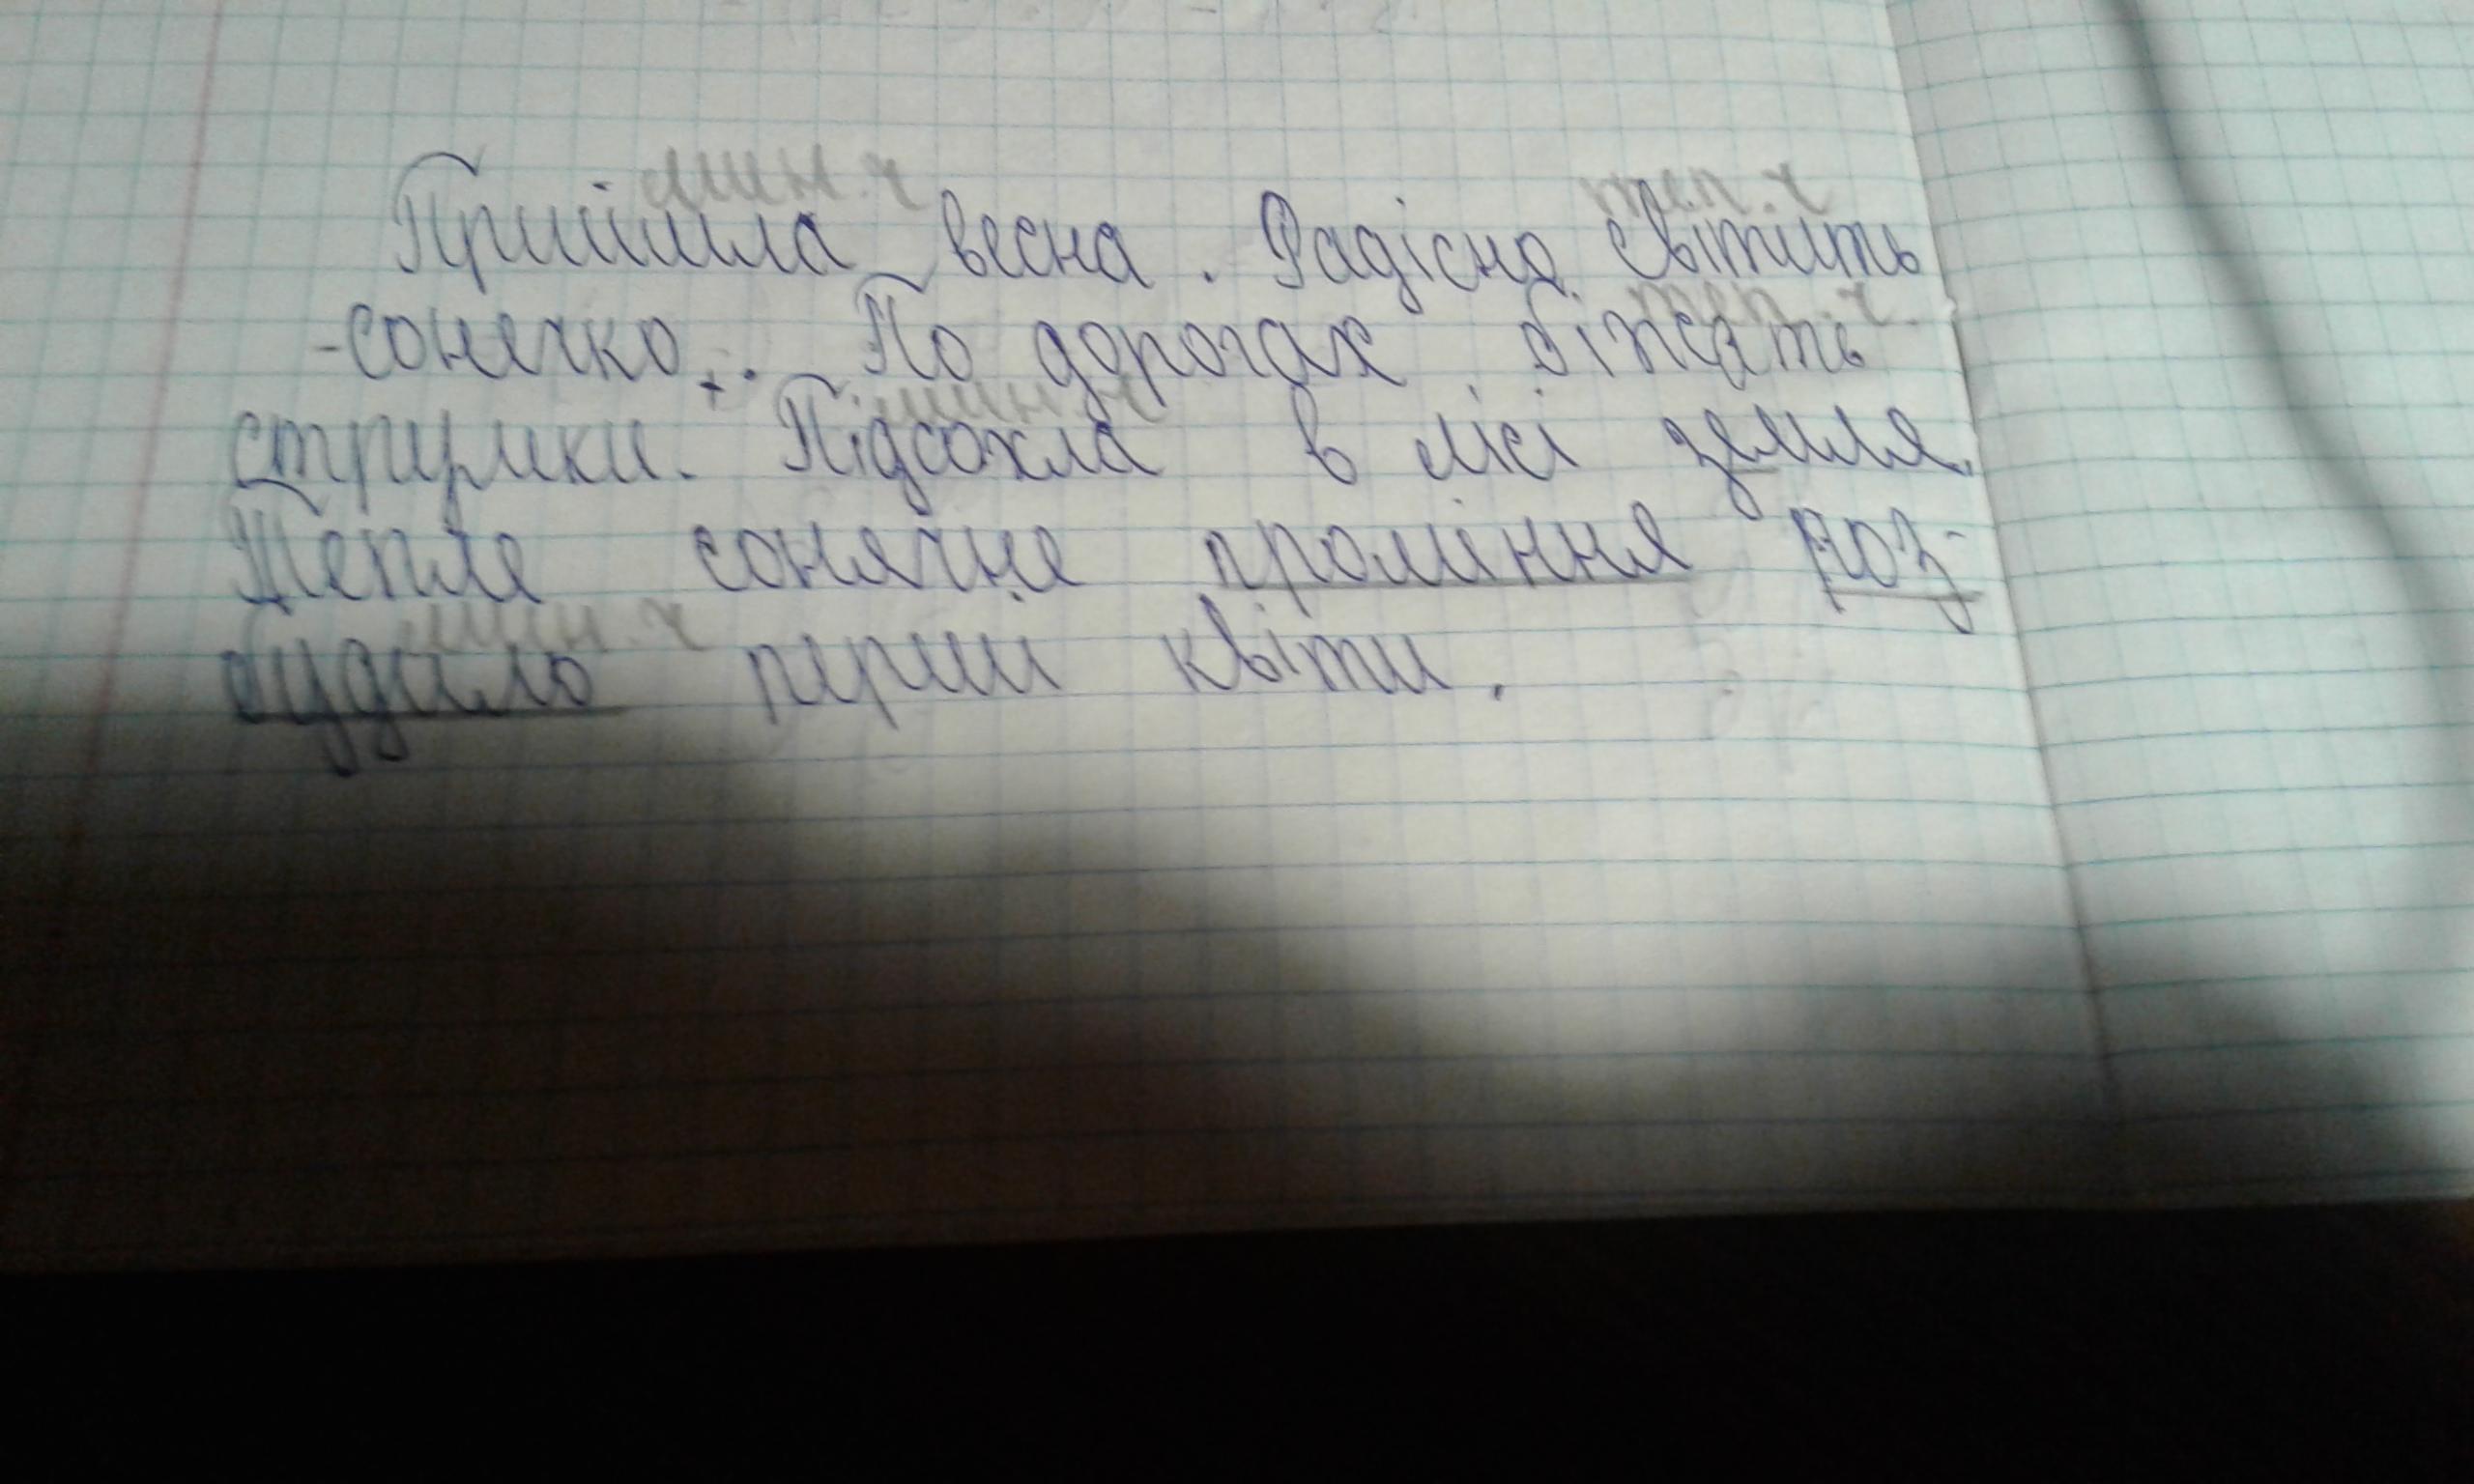 мин.ч теп.ч
Прийшла весна. Радісно світить
теп.ч.
-сонечко. По дорогах біжать
мин.ч
струмки. Підсохла в лісі земля.
Тепле сонячне проміння роз-
мин.ч
будило перші квіти.